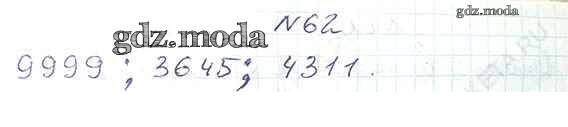 gdz.moda
N62
gdz.moda
9999; 3645; 4311.